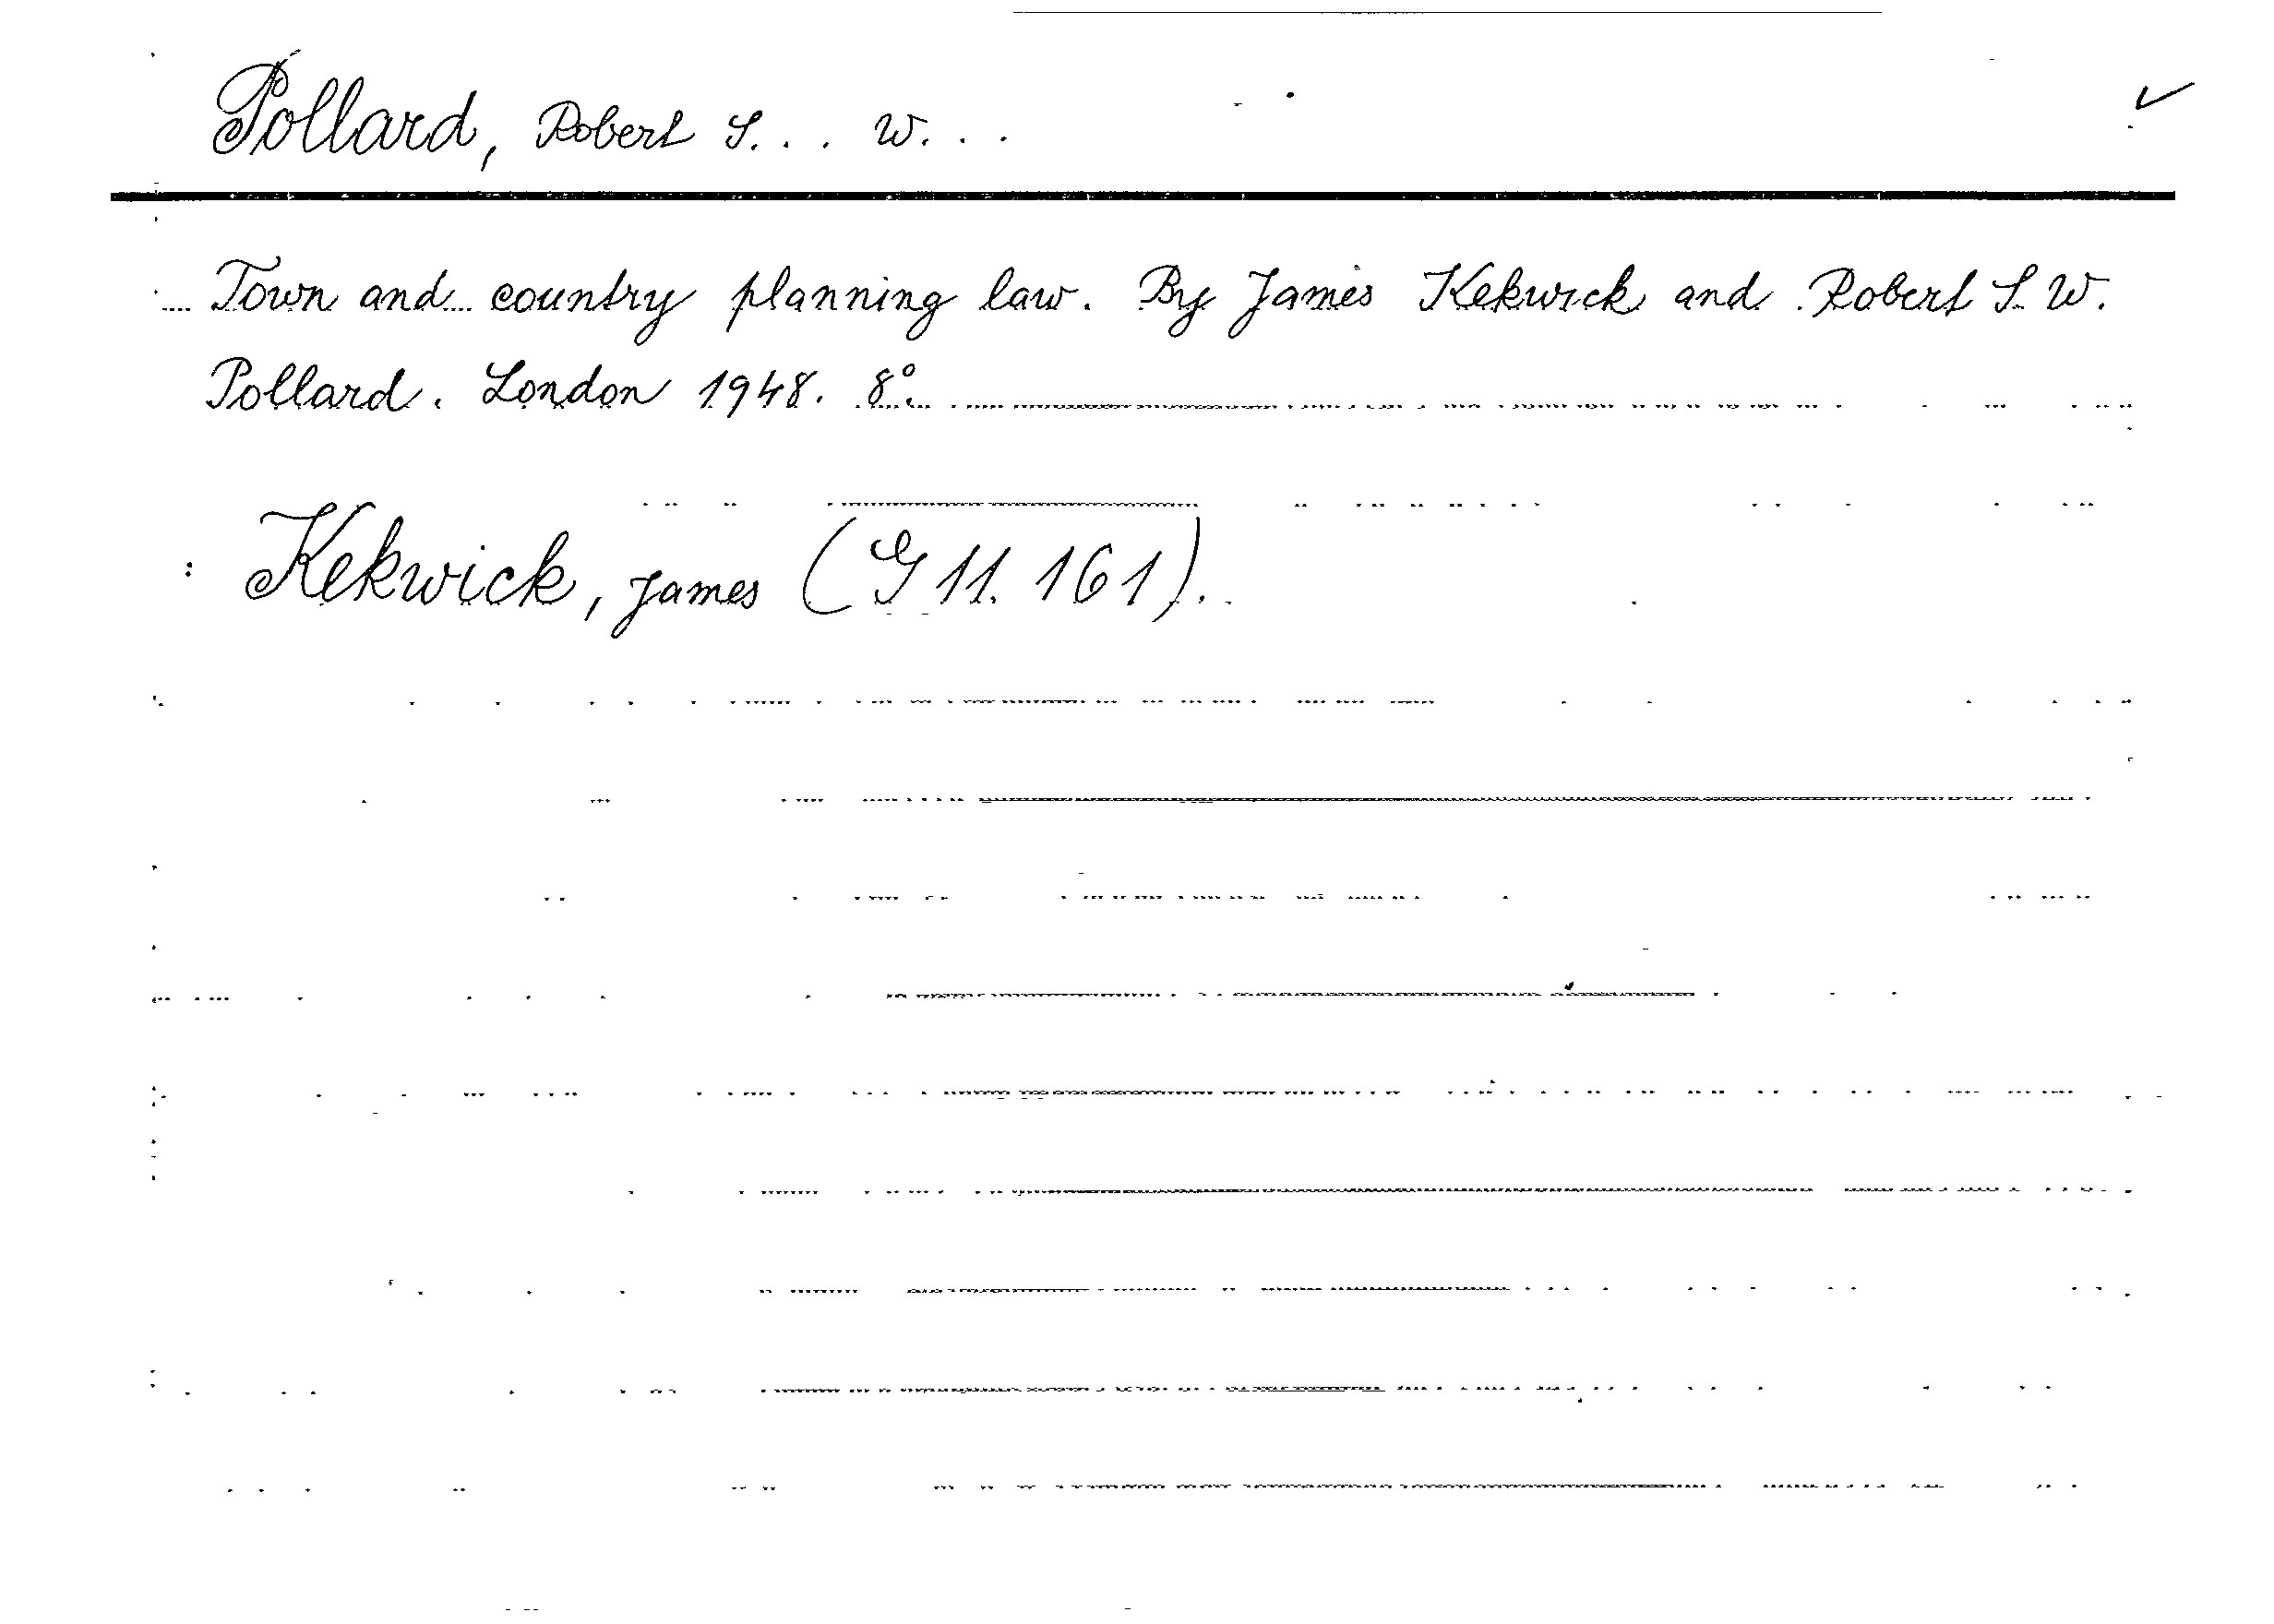 Pollard, Robert S... W...
Town and country planning law. By James Kekwick and Robert S. W.
Pollard. London 1948. 8°.
Kekwick, James (G 11. 161).